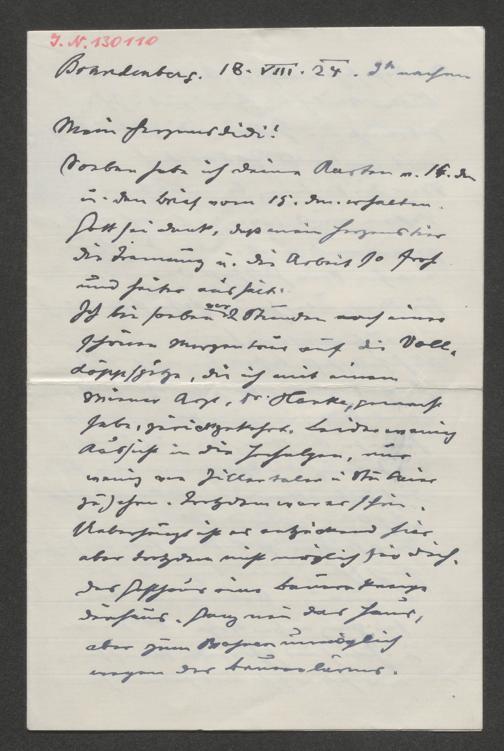 J.N. 130110
Brandenberg. 18. VIII. 24.
Mein Herzensdidi!
Soeben habe ich deine Karten v. 14. den
u. den brief vom 15. den. erhalten.
Gott sei dank, daß mein Herzenstier
die Trennung u. die Arbeit so
und heiter aussieht.
Ich bin soeben vor 2 Stunden nach einer
schönen Morgentour auf die Voll-
döppspitze, die ich mit einem
Wiener Arzt, Dr. Hanke, gemacht
habe, zurückgekehrt. Leider wenig
Aussicht in die, nur
wenig vom Zillertaler u. Stubaier
zu sehen. Trotzdem war es schön.
Überhaupt ist es entzückend hier
aber trotzdem nicht möglich für dich.
Das Gasthaus eine
. Ganz neu das Haus,
aber zum Wohnen unmöglich
wegen des